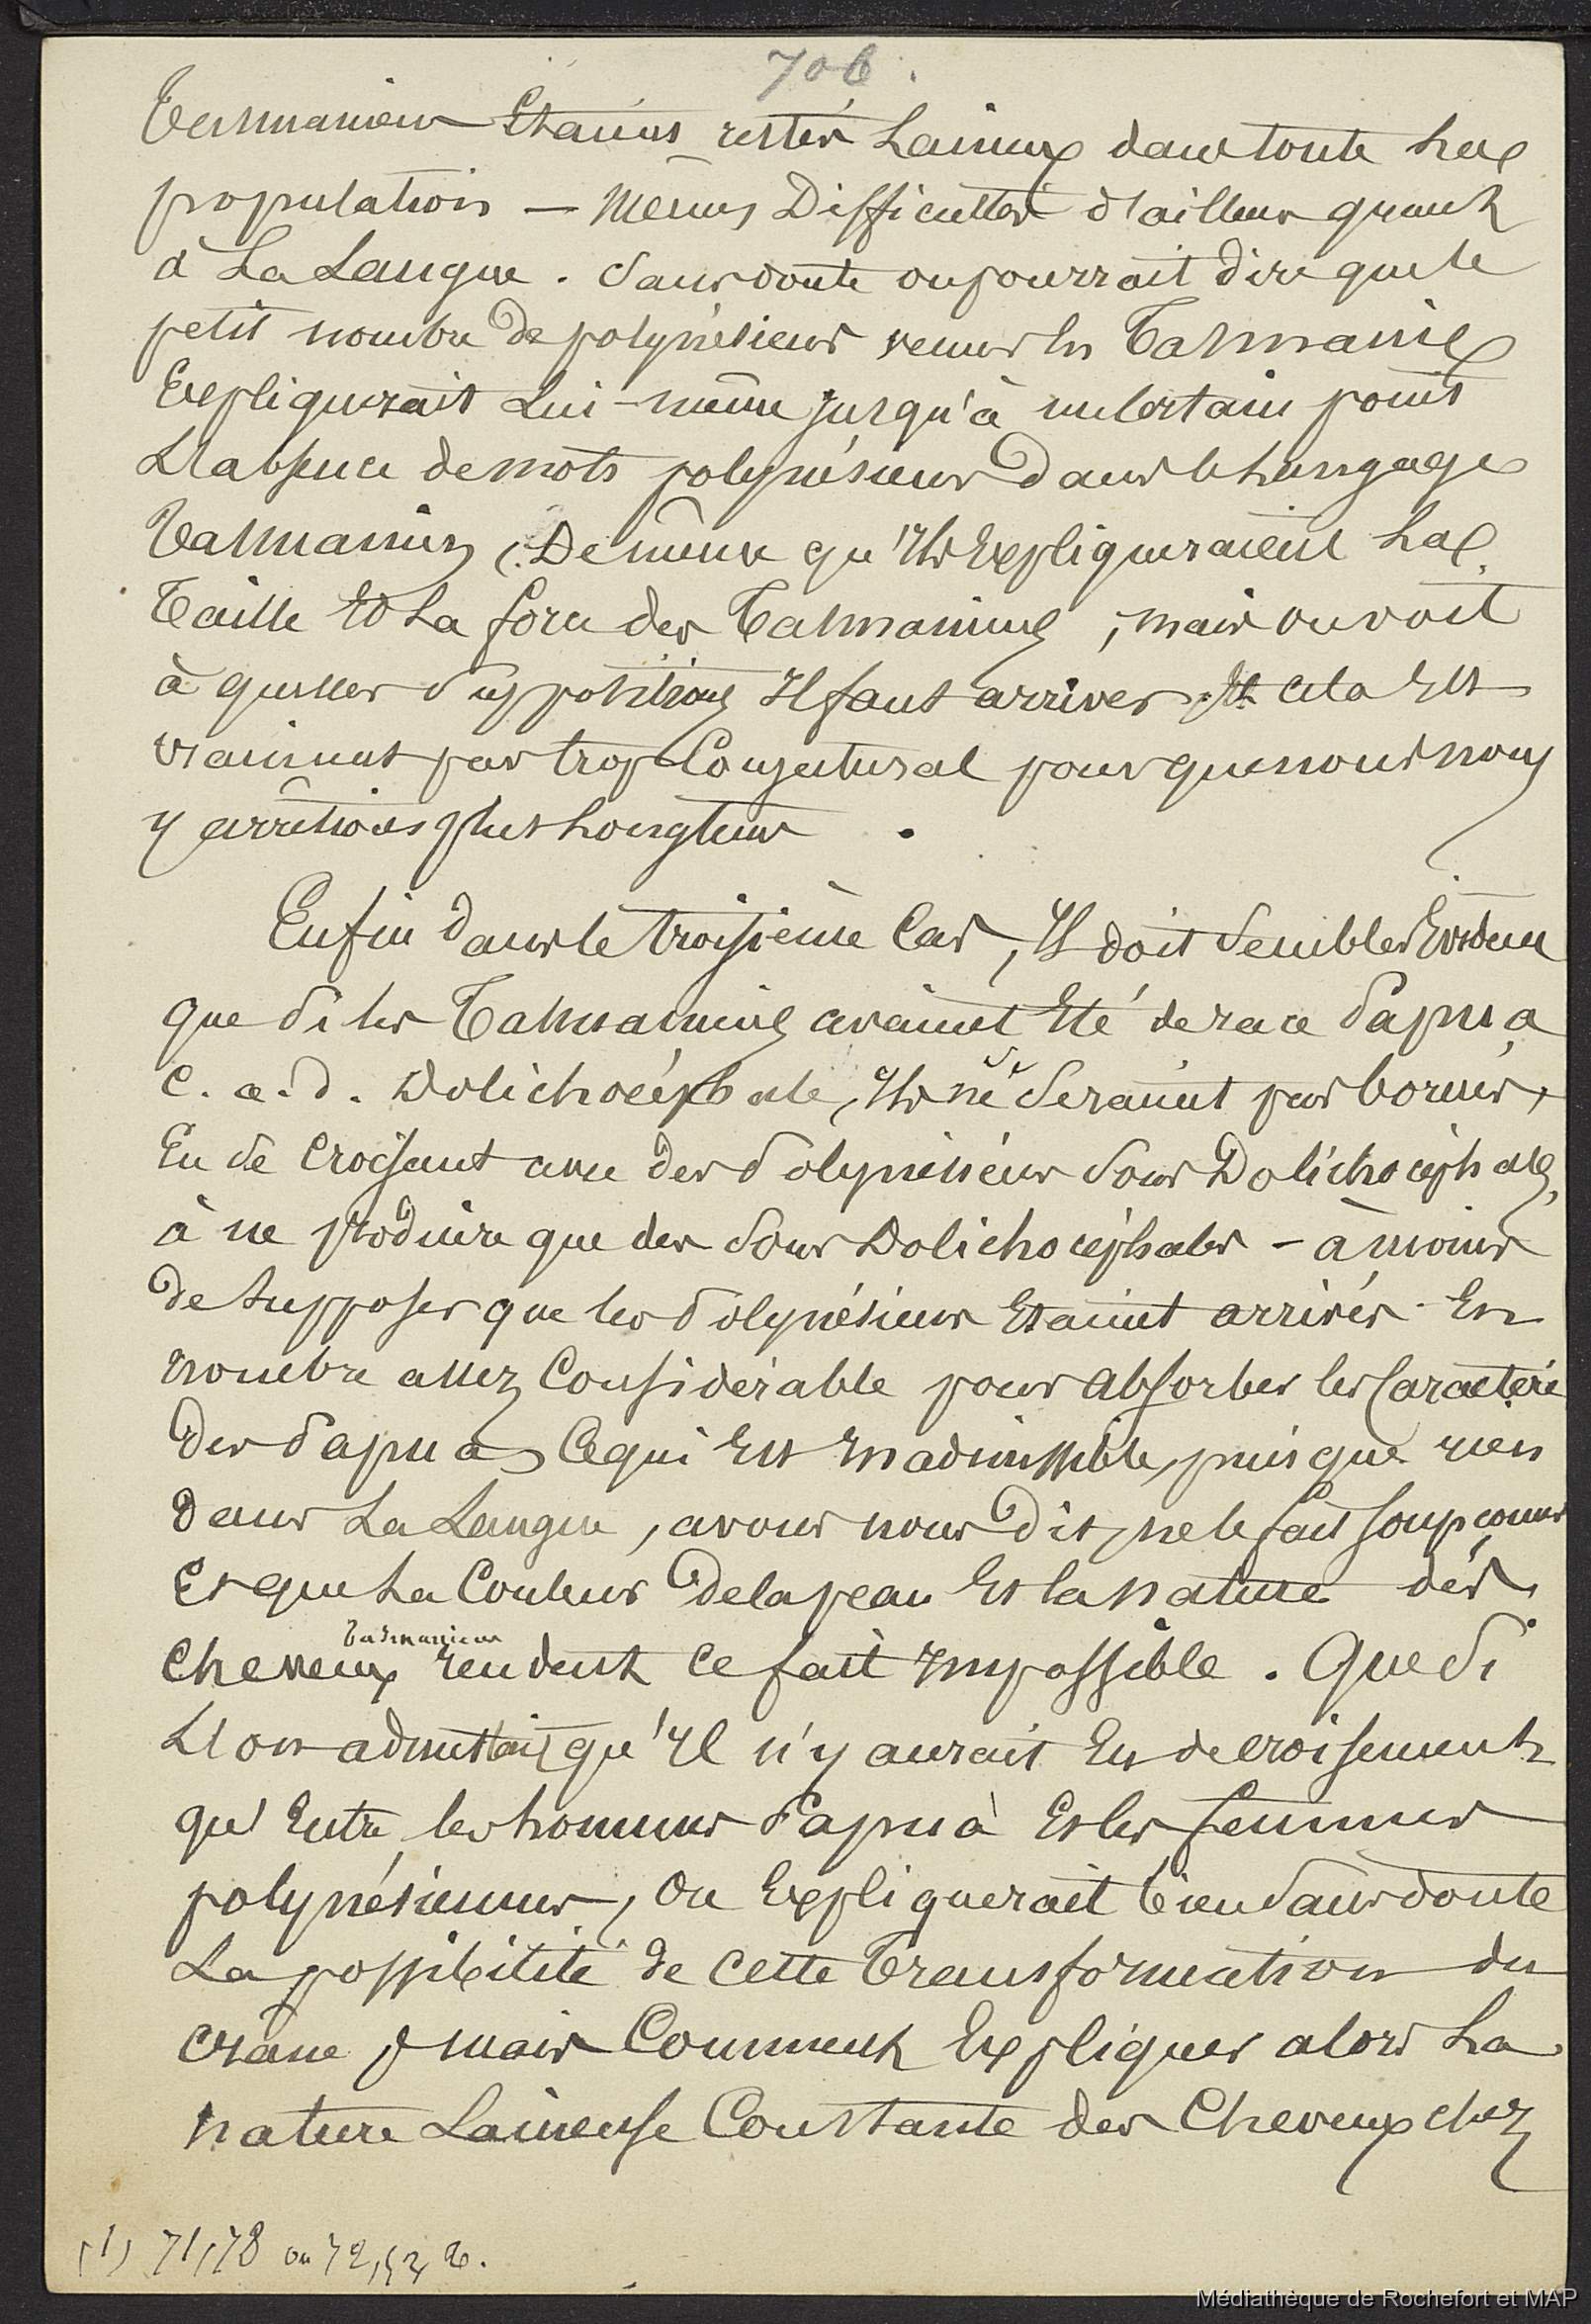 706.
Tasmaniens étaient restés laineux dans toute la
population — mêmes difficultés d'ailleurs quant
à la langue. Sans doute on pourrait dire que le
petit nombre de polynésiens venus en Tasmanie
expliquerait lui-même jusqu'à un certain point
l'absence de mots polynésiens dans le langage
Tasmanien, de même qu'ils expliqueraient la
taille et la force des Tasmaniens, mais on voit
à quelles suppositions il faut arriver. et cela est
vraiment par trop conjectural pour que nous nous
y arrêtions plus longtems.
Enfin dans le troisième cas, il doit sembler évident
que si les Tasmaniens avaient été de race Papua
c. a. d. Dolichocéphale, ils ne se seraient pas bornés,
en se croisant avec des Polynésiens sous Dolichocéphales,
à ne produire que des sous Dolichocéphales — à moins
de supposer que les Polynésiens étaient arrivés en
nombre assez considérable pour absorber les caractères
des Papuas ce qui est inadmissible, puisque rien
dans la langue, avons nous dit, ne le fait soupçonner
et que la couleur de la peau et la nature des
cheveux Tasmaniens rendent ce fait impossible. Que si
l'on admettait qu'il n'y aurait eu de croisement
qu'entre les hommes Papua et les femmes
polynésiennes, on expliquerait bien sans doute
la possibilité de cette transformation du
crâne, mais comment expliquer alors la
nature laineuse constante des cheveux chez
(1) 71,78 ou 72,